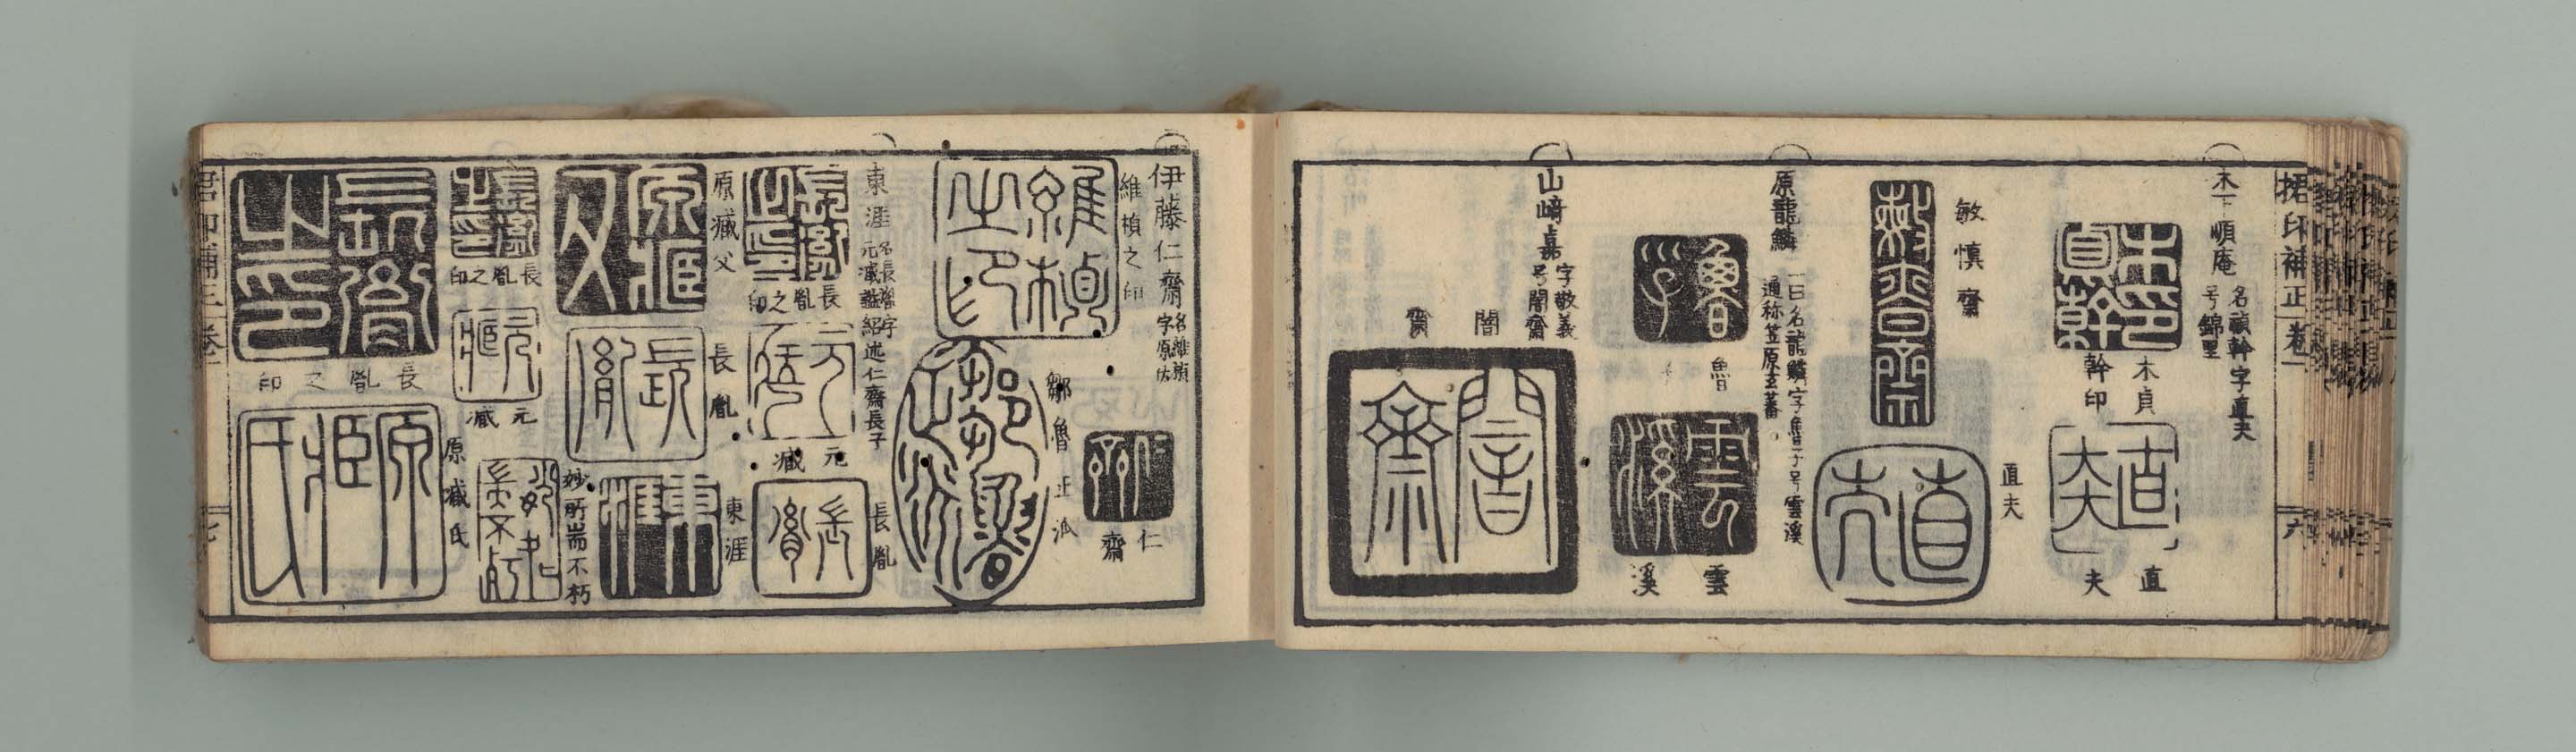 捃印補正 卷一
六
木下順庵 名貞幹字直夫
号錦里
木貞
幹印
直夫
敏慎齋
直夫
原龍鱗 一曰名龍鱗字魯子号雲溪
通称笠原玄蕃
魯
雲溪
山﨑嘉 字敬義
号闇齋
闇齋
伊藤仁齋 名維楨
字原佐
維楨之印
仁齋
鄒魯正派
東涯 名長胤字
元藏 紹述仁齋長子
長胤之印
元藏
長胤
原藏父
長胤
東涯
長胤之印
元藏
妙所耑不朽
長胤之印
原藏氏
七